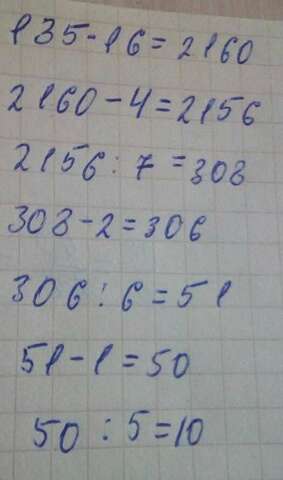 135-16=2160
2160-4=2156
2156:7=308
308-2=306
306:6=51
51-1=50
50:5=10